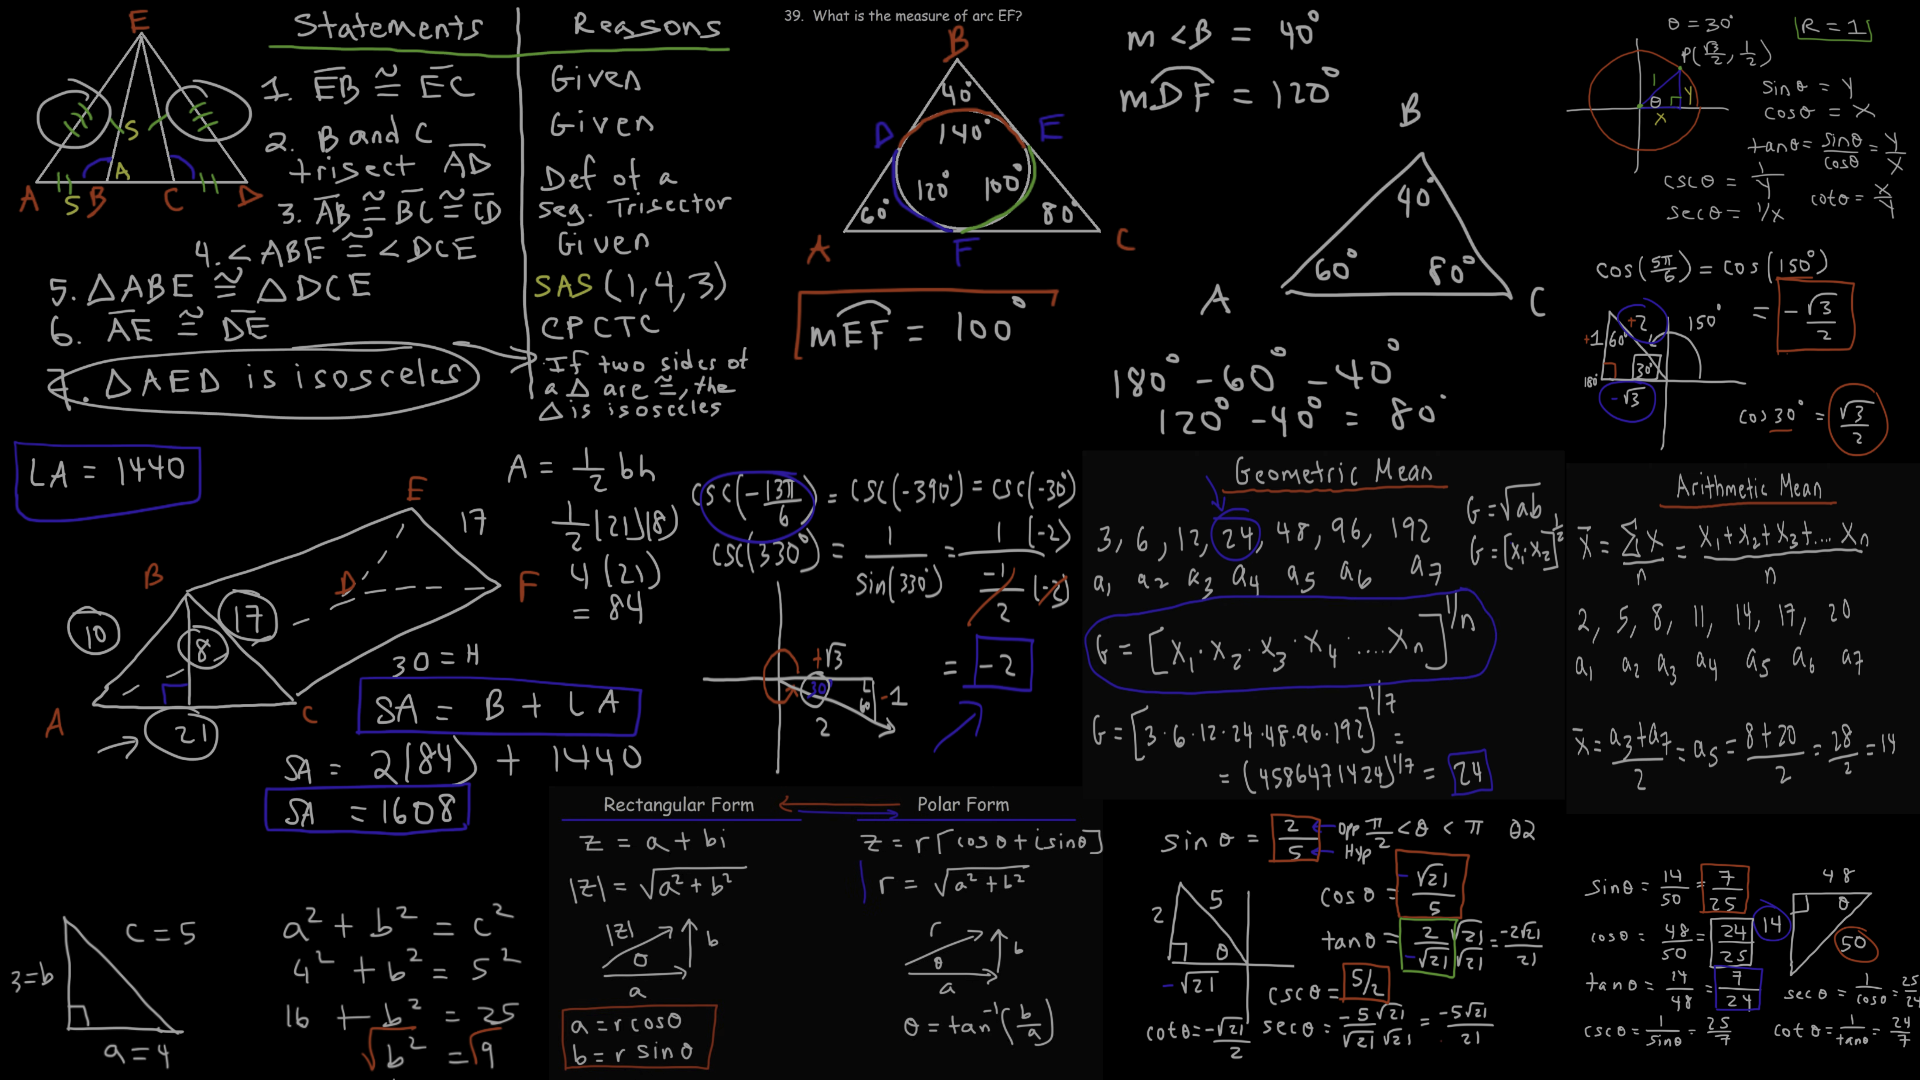 E
Statements
Reasons
A
B
C
D
S
A
S
1. EB ≅ EC
Given
2. B and C
trisect AD
Given
3. AB ≅ BC ≅ CD
Def of a
seg. Trisector
4. <ABE ≅ <DCE
Given
5. △ABE ≅ △DCE
SAS (1, 4, 3)
6. AE ≅ DE
CPCTC
7. △AED is isosceles
If two sides of
a △ are ≅, the
△ is isosceles
39. What is the measure of arc EF?
B
40°
D
140°
E
120°
100°
60°
80°
A
F
C
mEF = 100°
m<B = 40°
mDF = 120°
B
40°
60°
80°
A
C
180° - 60° - 40°
120° - 40° = 80°
θ = 30°
R = 1
P(√3/2, 1/2)
1
θ
y
x
sinθ = y
cosθ = x
tanθ = sinθ/cosθ = y/x
cscθ = 1/y
secθ = 1/x
cotθ = x/y
cos(5π/6) = cos(150°)
= -√3/2
+1
60°
+2
150°
180°
30°
-√3
cos 30° = √3/2
LA = 1440
A = 1/2 bh
1/2 (21)(8)
4(21)
= 84
E
17
B
D
F
10
8
17
A
21
C
30 = H
SA = B + LA
SA = 2(84) + 1440
SA = 1608
csc(-13π/6) = csc(-390°) = csc(-30°)
csc(330°) = 1/sin(330°) = 1 (-2)/-1/2 (-2)
+√3
30
60
-1
2
= -2
Geometric Mean
3, 6, 12, 24, 48, 96, 192
a1 a2 a3 a4 a5 a6 a7
G = √ab
G = [x1·x2]^1/2
G = [x1·x2·x3·x4·....xn]^1/n
G = [3·6·12·24·48·96·192]^1/7 =
= (4586471424)^1/7 = 24
Arithmetic Mean
x̄ = Σx/n = x1+x2+x3+....xn/n
2, 5, 8, 11, 14, 17, 20
a1 a2 a3 a4 a5 a6 a7
x̄ = a3+a7/2 = a5 = 8+20/2 = 28/2 = 14
3=b
c = 5
a = 4
a² + b² = c²
4² + b² = 5²
16 + b² = 25
√b² = √9
Rectangular Form
Polar Form
z = a + bi
z = r[cosθ + isinθ]
|z| = √a² + b²
r = √a² + b²
|z|
b
θ
a
r
b
θ
a
a = r cosθ
b = r sinθ
θ = tan⁻¹(b/a)
sinθ = 2/5
Opp
Hyp
π/2 < θ < π
Q2
2
5
θ
-√21
cosθ = -√21/5
tanθ = 2/-√21 √21/√21 = -2√21/21
cscθ = 5/2
cotθ = -√21/2
secθ = -5/√21 √21/√21 = -5√21/21
sinθ = 14/50 = 7/25
cosθ = 48/50 = 24/25
tanθ = 14/48 = 7/24
cscθ = 1/sinθ = 25/7
48
θ
14
50
secθ = 1/cosθ = 25/24
cotθ = 1/tanθ = 24/7